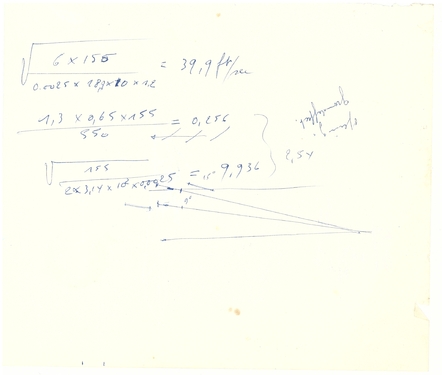 √ 6 × 155 / 0.0025 × 183 × 20 × 12 = 39,9 ft/sec
1,3 × 0,65 × 155 / 550 = 0,256
√ 155 / 2 × 3,14 × 10² × 0,0025 = 9,936
2,54